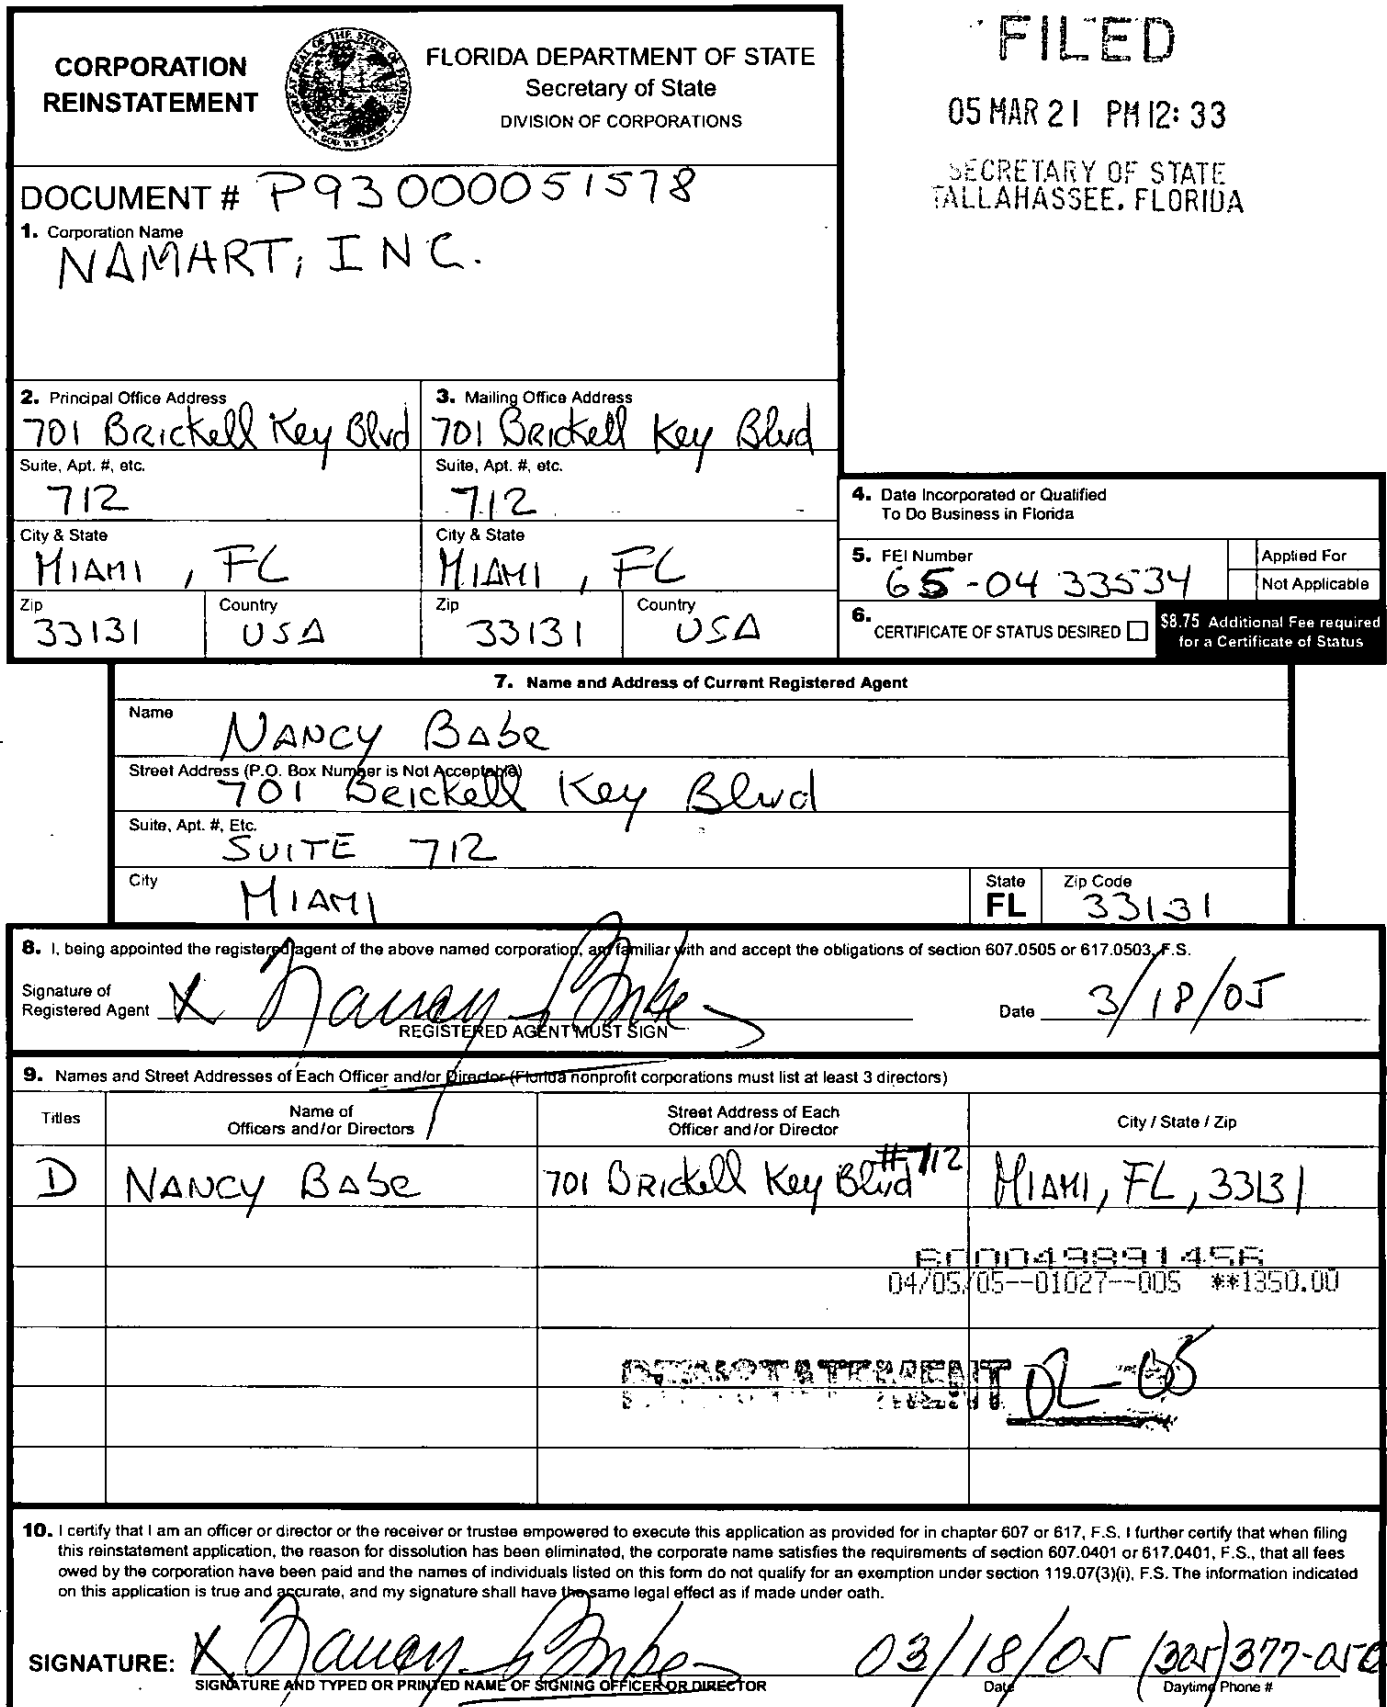 CORPORATION
REINSTATEMENT
FLORIDA DEPARTMENT OF STATE
Secretary of State
DIVISION OF CORPORATIONS
FILED
05 MAR 21 PM 12:33
SECRETARY OF STATE
TALLAHASSEE, FLORIDA
DOCUMENT # P93000051578
1. Corporation Name
NAMART, INC.
2. Principal Office Address
701 Brickell Key Blvd
3. Mailing Office Address
701 Brickell Key Blvd
Suite, Apt. #, etc.
712
Suite, Apt. #, etc.
712
City & State
MIAMI, FL
City & State
MIAMI, FL
Zip
33131
Country
USA
Zip
33131
Country
USA
4. Date Incorporated or Qualified
To Do Business in Florida
5. FEI Number
65-0433534
Applied For
Not Applicable
6. CERTIFICATE OF STATUS DESIRED
$8.75 Additional Fee required
for a Certificate of Status
7. Name and Address of Current Registered Agent
Name
NANCY Babe
Street Address (P.O. Box Number is Not Acceptable)
701 Brickell Key Blvd
Suite, Apt. #, Etc.
SUITE 712
City
MIAMI
State
FL
Zip Code
33131
8. I, being appointed the registered agent of the above named corporation, am familiar with and accept the obligations of section 607.0505 or 617.0503, F.S.
Signature of
Registered Agent X Nancy Babe
REGISTERED AGENT MUST SIGN
Date 3/18/05
9. Names and Street Addresses of Each Officer and/or Director (Florida nonprofit corporations must list at least 3 directors)
Titles
Name of
Officers and/or Directors
Street Address of Each
Officer and/or Director
City / State / Zip
D NANCY Babe 701 Brickell Key Blvd #712 MIAMI, FL, 33131
04/05/05--01027--005 **1350.00
REINSTATEMENT 02-05
10. I certify that I am an officer or director or the receiver or trustee empowered to execute this application as provided for in chapter 607 or 617, F.S. I further certify that when filing
this reinstatement application, the reason for dissolution has been eliminated, the corporate name satisfies the requirements of section 607.0401 or 617.0401, F.S., that all fees
owed by the corporation have been paid and the names of individuals listed on this form do not qualify for an exemption under section 119.07(3)(i), F.S. The information indicated
on this application is true and accurate, and my signature shall have the same legal effect as if made under oath.
SIGNATURE: X Nancy Babe 03/18/05 (305)377-050
SIGNATURE AND TYPED OR PRINTED NAME OF SIGNING OFFICER OR DIRECTOR
Date
Daytime Phone #